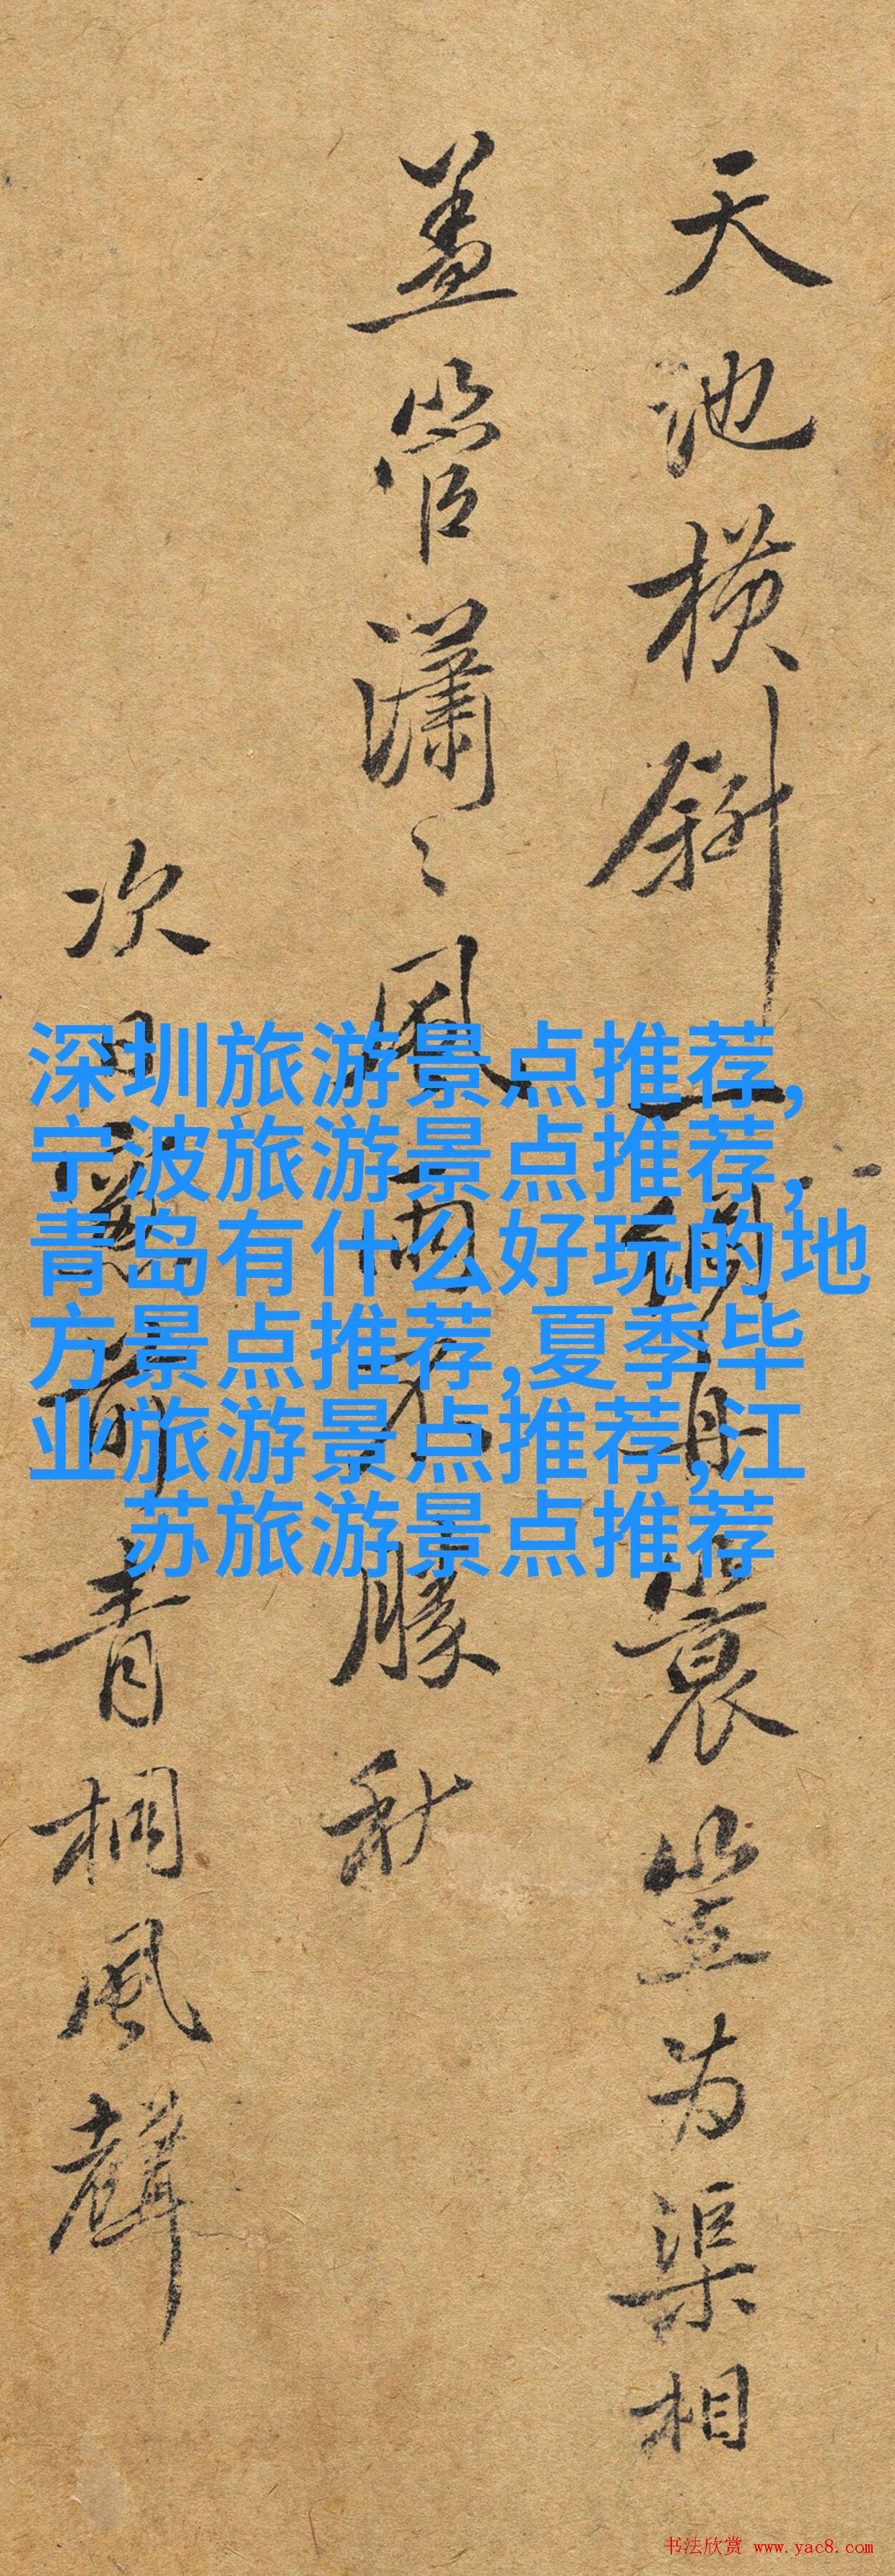 天池橫斜一舟蓑笠为渠相
盖管瀟〻風雨不勝秋
次日前青桐風聲
深圳旅游景点推荐,
宁波旅游景点推荐,
青岛有什么好玩的地
方景点推荐,夏季毕
业旅游景点推荐,江
苏旅游景点推荐
书法欣赏 www.yac8.com